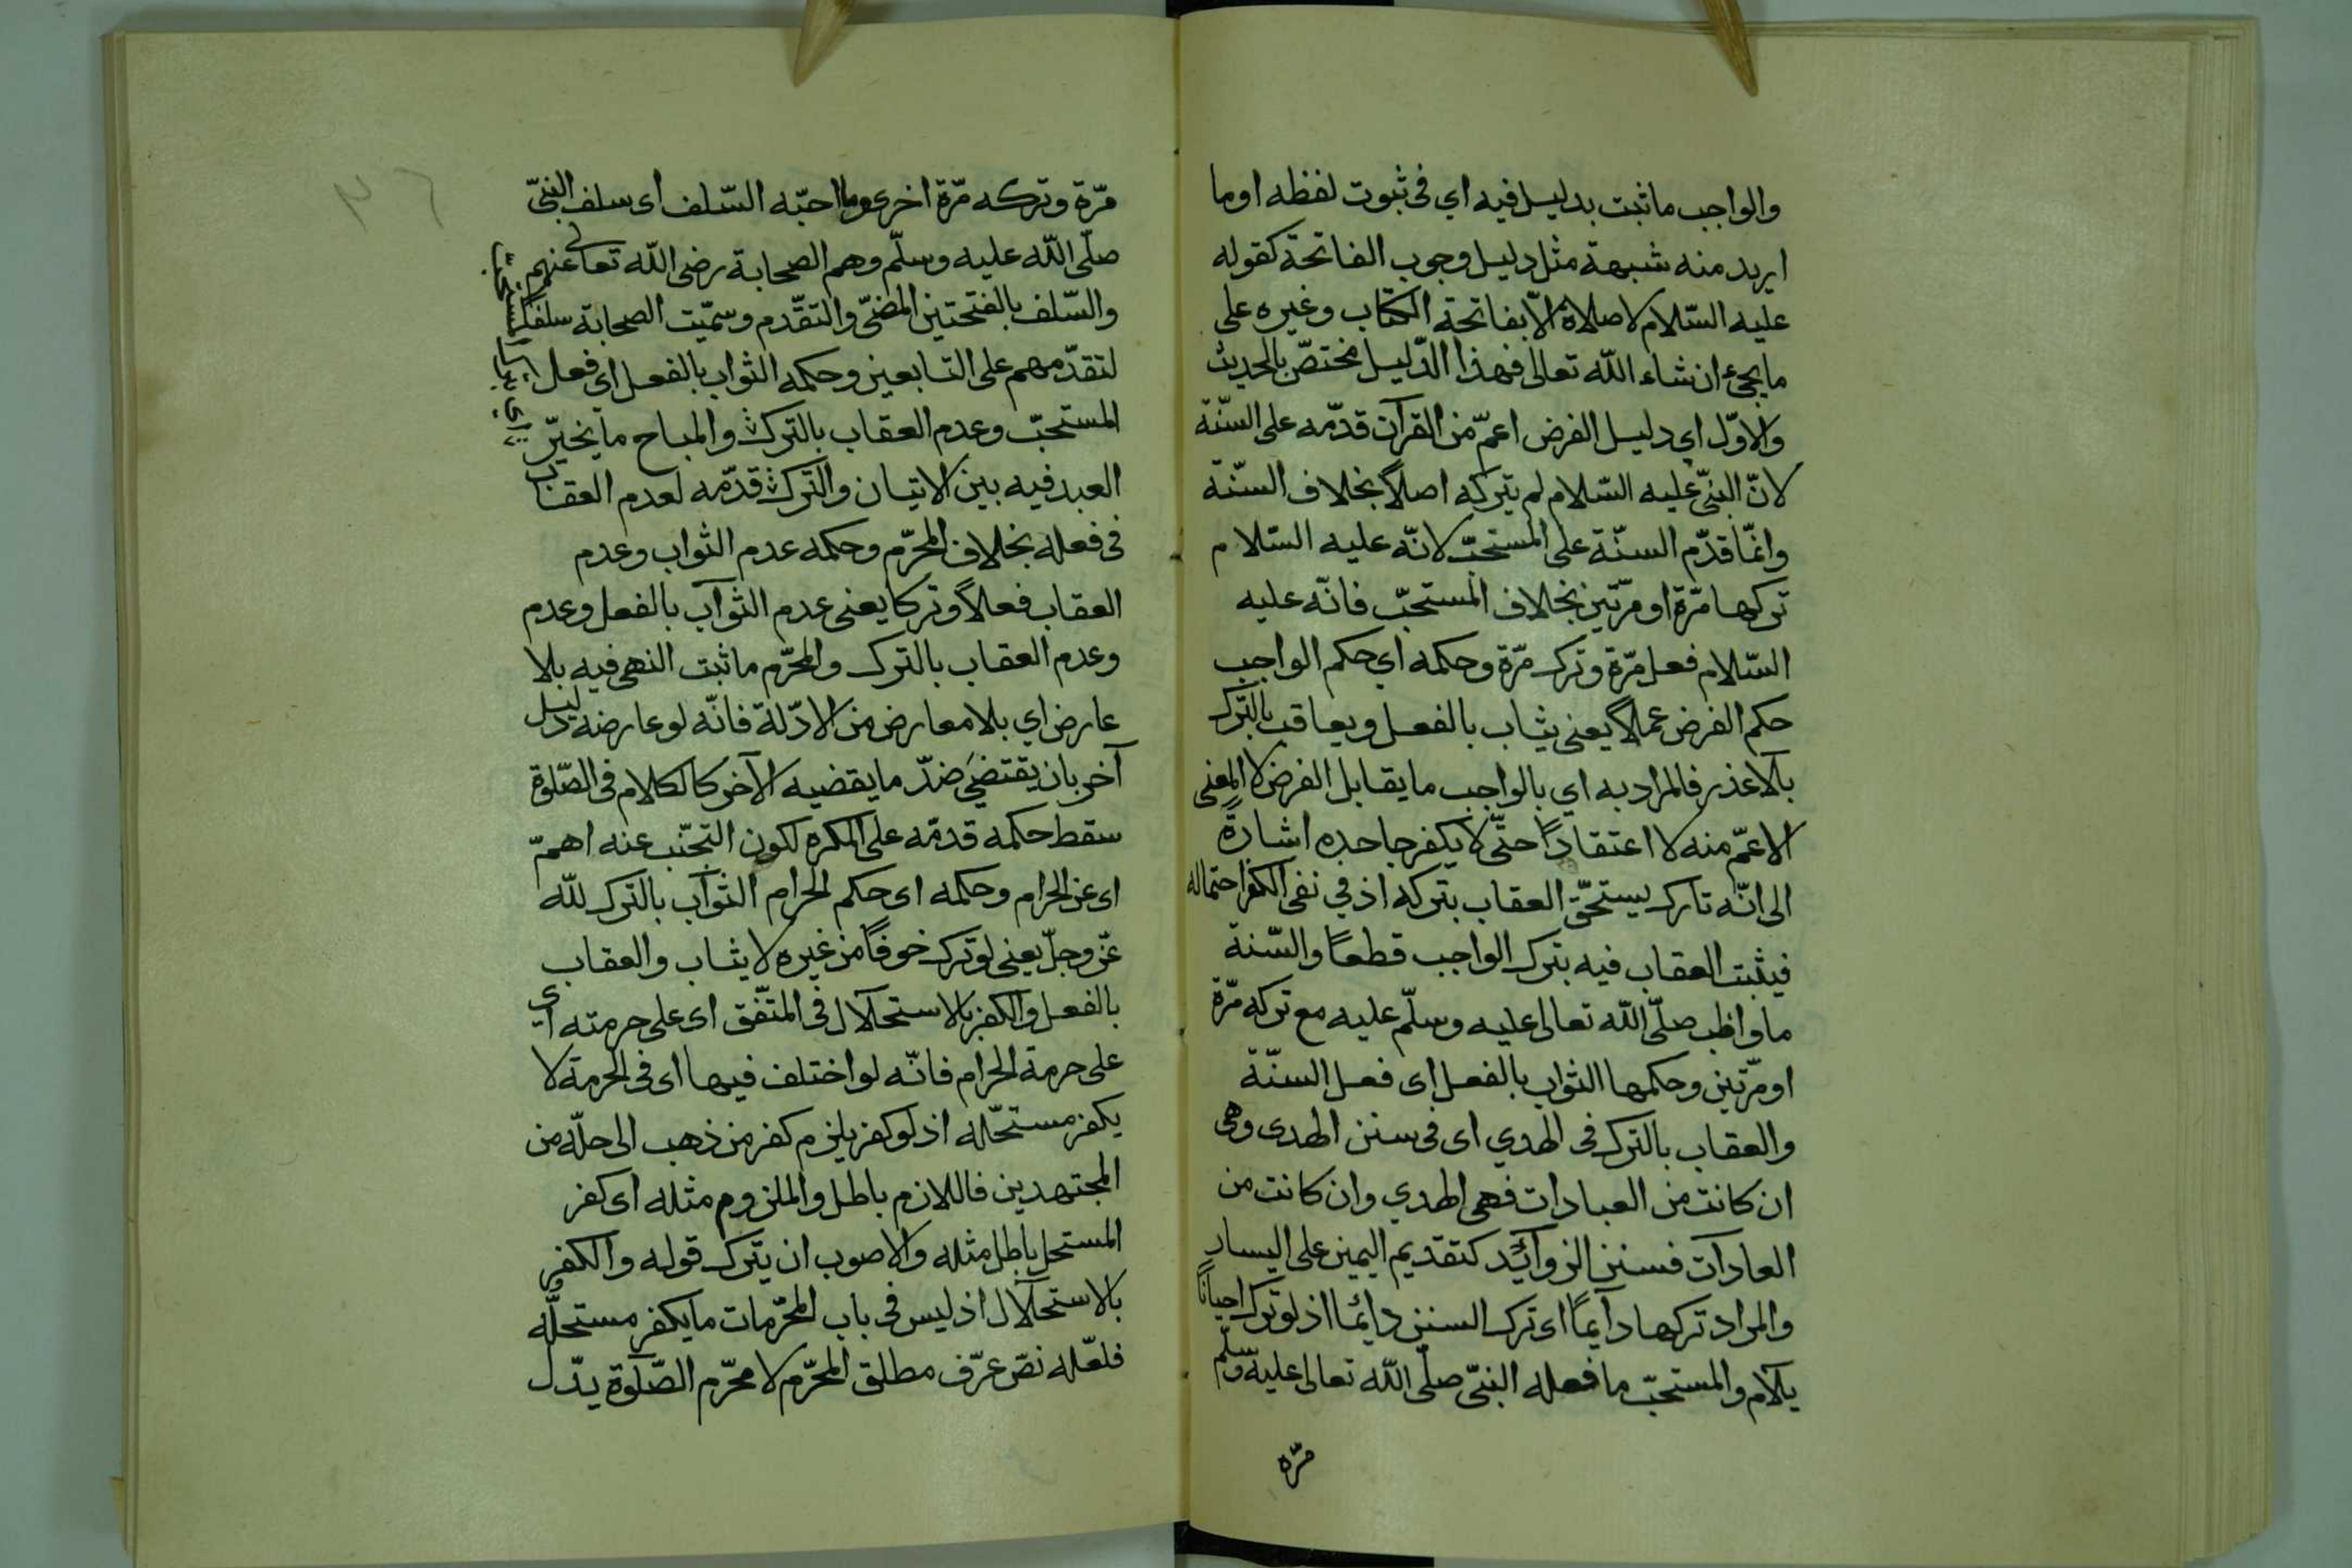 والواجب ما ثبت بدليل فيه اي فى ثبوت لفظه او ما
اريد منه شبهة مثل دليل وجوب الفاتحة كقوله
عليه السّلام لا صلاة الّا بفاتحة الكتاب وغيره على
ما يجئ ان شاء اللّه تعالى فهذا الدّليل مختصّ بالحديث
والاوّل اي دليل الفرض اعمّ من القرآن قدّمه على السنّة
لانّ النبىّ عليه السّلام لم يتركه اصلاً بخلاف السنّة
وانّما قدّم السنّة على المستحبّ لانّه عليه السّلام
تركها مرّة او مرّتين بخلاف المستحبّ فانّه عليه
السّلام فعل مرّة وترك مرّة وحكمه اي حكم الواجب
حكم الفرض عملاً يعنى يثاب بالفعل ويعاقب بالتّرك
بلا عذر فالمراد به اي بالواجب ما يقابل الفرض لا المعنى
الاعمّ منه لا اعتقاداً حتّى لا يكفر جاحده اشارةً
الى انّه تارك يستحقّ العقاب بتركه اذ في نفى الكفر احتماله
فيثبت العقاب فيه بترك الواجب قطعاً والسّنة
ما واظب صلّى اللّه تعالى عليه وسلّم عليه مع تركه مرّة
او مرّتين وحكمها الثواب بالفعل اى فعل السنّة
والعقاب بالترك فى الهدي اى فى سنن الهدى وهى
ان كانت من العبادات فهى الهدي وان كانت من
العادات فسنن الزوآئد كتقديم اليمين على اليسار
والمراد تركها دآيماً اى ترك السنن دائما اذ لو ترك احياناً
يلام والمستحبّ ما فعله النبىّ صلّى اللّه تعالى عليه وسلّم
مرّه
مرّة وتركه مرّة اخرى وما احبّه السّلف اى سلف النبىّ
صلّى اللّه عليه وسلّم وهم الصحابة رضى اللّه تعالى عنهم
والسّلف بالفتحتين المضىّ والتقدّم وسمّيت الصحابة سلفا
لتقدّمهم على التابعين وحكمه الثواب بالفعل اى فعل
المستحبّ وعدم العقاب بالترك والمباح ما يخيّر
العبد فيه بين الاتيان والترك قدّمه لعدم العقاب
فى فعله بخلاف المحرّم وحكمه عدم الثواب وعدم
العقاب فعلاً وتركا يعنى عدم الثوآب بالفعل وعدم
وعدم العقاب بالترك والمحرّم ما ثبت النهى فيه بلا
عارض اي بلا معارض من الادّلة فانّه لو عارضه دليل
آخر بان يقتضى ضدّ ما يقضيه الآخر كالكلام فى الصّلوة
سقط حكمه قدمّه على المكره لكون التجنّب عنه اهمّ
اى عن الحرام وحكمه اى حكم الحرام الثوآب بالترك للّه
عزّ وجلّ يعنى لو ترك خوفاً من غيره لا يثاب والعقاب
بالفعل والكفر بالاستحلال فى المتّفق اى على حرمته اي
على حرمة الحرام فانّه لو اختلف فيها اى فى الحرمة لا
يكفر مستحّله اذ لو كفر يلزم كفر من ذهب الى حلّه من
المجتهدين فاللازم باطل والملزوم مثله اى كفر
المستحل باطل مثله والاصوب ان يترك قوله والكفر
بالاستحلال اذ ليس فى باب المحرّمات ما يكفر مستحلّه
فلعّله نصّ عرّف مطلق المحرّم لا محرّم الصّلوة يدّل